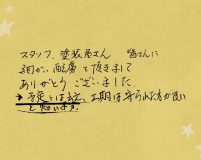 スタッフ、塗装屋さん 皆さんに
細かい配慮を頂きまして
ありがとうございました。
→予定とは言え、工期は守られた方が良い
と思います。